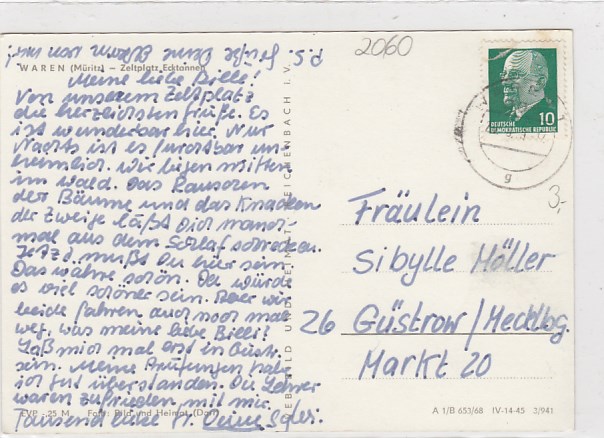 P.S. Grüße Deine Eltern von mir!
2060
WAREN (Müritz) — Zeltplatz Ecktannen
Meine liebe Bille!
Von unserem Zeltplatz
die herzlichsten Grüße. Es
ist wunderbar hier. Nur
Nachts ist es furchtbar un-
heimlich. Wir liegen mitten
im Wald. Das Rauschen
der Bäume und das Knacken
der Zweige läßt Dich manch-
mal aus dem Schlaf schrecken.
Jetzt müßt Du hier sein.
Das wäre schön. Da würde
es viel schöner sein. Aber wir
beide fahren auch noch mal
weg, was meine liebe Bille!
Laß mich mal erst in Güstr.
sein. Meine Prüfungen habe
ich gut überstanden. Die Lehrer
waren zufrieden mit mir.
Tausend liebe Deine
EVP -25 M Foto: Bild und Heimat (Darr)
BILD UND HEIMAT REICHENBACH I. V.
10
DEUTSCHE
DEMOKRATISCHE REPUBLIK
g
3,-
Fräulein
Sibylle Möller
26 Güstrow/Mecklbg.
Markt 20
A 1/B 653/68 IV-14-45 3/941